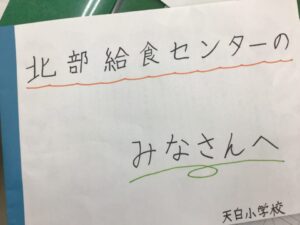 北部給食センターの
みなさんへ
天白小学校